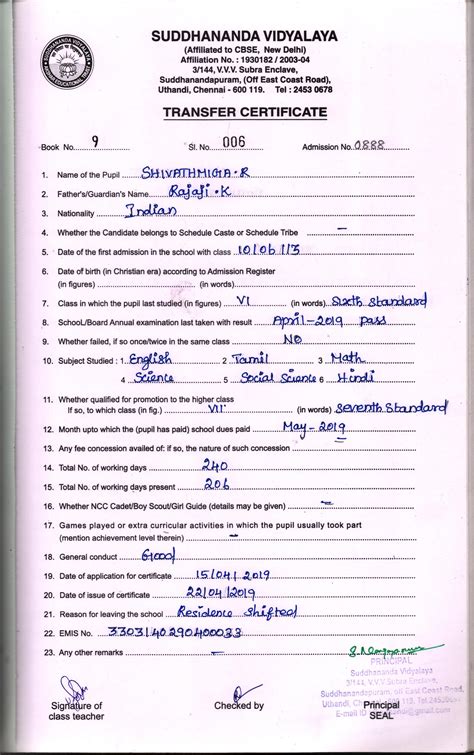 SUDDHANANDA VIDYALAYA
(Affiliated to CBSE, New Delhi)
Affiliation No. : 1930182 / 2003-04
3/144, V.V.V. Subra Enclave,
Suddhanandapuram, (Off East Coast Road),
Uthandi, Chennai - 600 119. Tel : 2453 0678
TRANSFER CERTIFICATE
Book No. 9 Sl. No. 006 Admission No. 0888
1. Name of the Pupil SHIVATHMIGA.R
2. Father's/Guardian's Name Rajaji.K
3. Nationality Indian
4. Whether the Candidate belongs to Schedule Caste or Schedule Tribe —
5. Date of the first admission in the school with class 10/06/13
6. Date of birth (in Christian era) according to Admission Register
(in figures) (in words)
7. Class in which the pupil last studied (in figures) VI (in words) Sixth Standard
8. School/Board Annual examination last taken with result April-2019 pass
9. Whether failed, if so once/twice in the same class NO
10. Subject Studied : 1. English 2. Tamil 3. Math
4. Science 5. Social Science 6. Hindi
11. Whether qualified for promotion to the higher class
If so, to which class (in fig.) VII (in words) Seventh Standard
12. Month upto which the (pupil has paid) school dues paid May-2019
13. Any fee concession availed of: if so, the nature of such concession —
14. Total No. of working days 240
15. Total No. of working days present 206
16. Whether NCC Cadet/Boy Scout/Girl Guide (details may be given) —
17. Games played or extra curricular activities in which the pupil usually took part
(mention achievement level therein) —
18. General conduct Good
19. Date of application for certificate 15/04/2019
20. Date of issue of certificate 22/04/2019
21. Reason for leaving the school Residence Shifted
22. EMIS No. 3303140290400033
23. Any other remarks —
PRINCIPAL
Suddhananda Vidyalaya
3/144, V.V.V. Subra Enclave,
Suddhanandapuram, off East Coast Road,
Uthandi, Chennai - 600 119. Tel.
Signature of class teacher
Checked by
Principal
SEAL